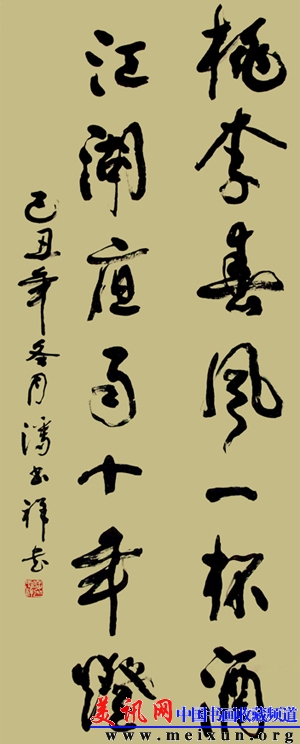 桃李春風一杯酒
江湖夜雨十年燈
己丑年冬月潘书祥书
美讯网 中国书画收藏频道
www.meixun.org